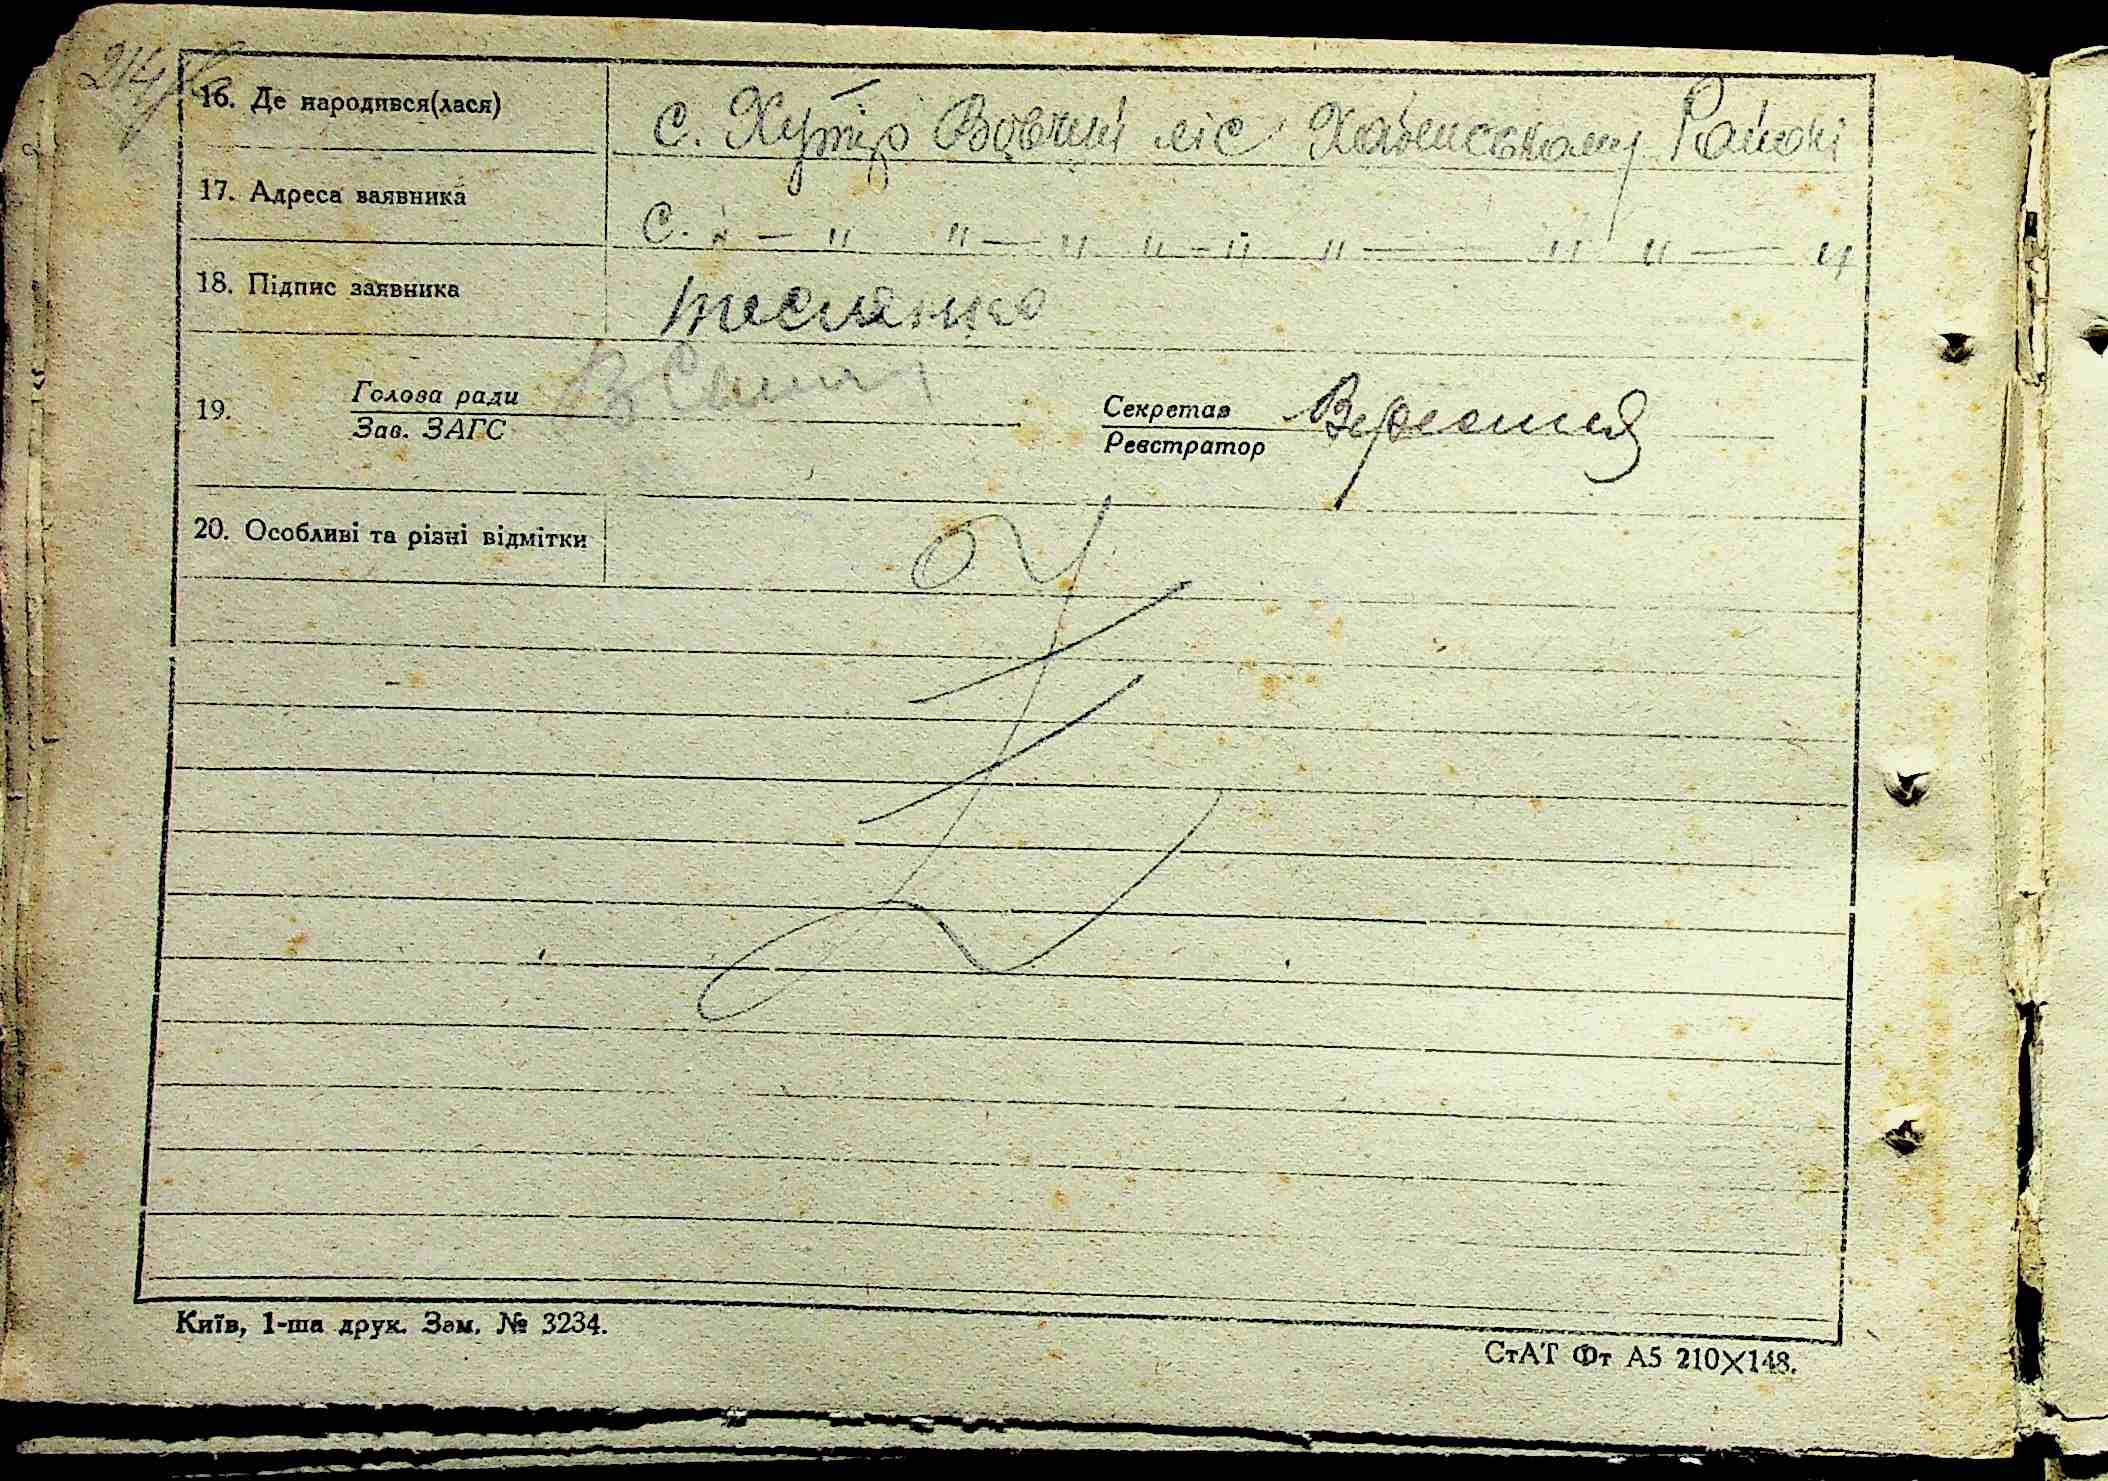 214
16. Де народився(лася) с. Хутір Вовчий ліс Хабенському Районі
17. Адреса заявника С. " — " " — " " — " " — " " — "
18. Підпис заявника тесленко
19. Голова ради
Зав. ЗАГС
Секретар
Реєстратор
20. Особливі та різні відмітки
Київ, 1-ша друк. Зам. № 3234.
СтАТ Фт А5 210×148.